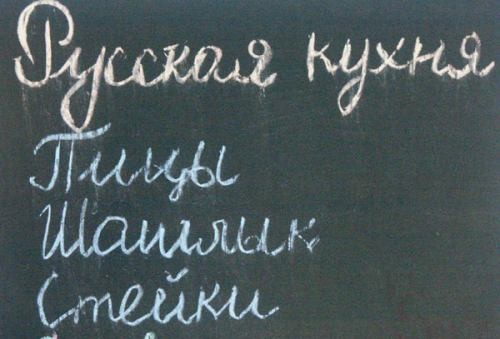 Русская кухня
Пицы
Шашлык
Стейки